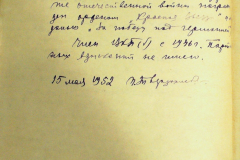 же отечественной войны награж
ден орденом "Красная звезда"
" За победу над Германией
Член ВКП(б) с 1936г. Партий
ных взысканий не имею.
15 мая 1952